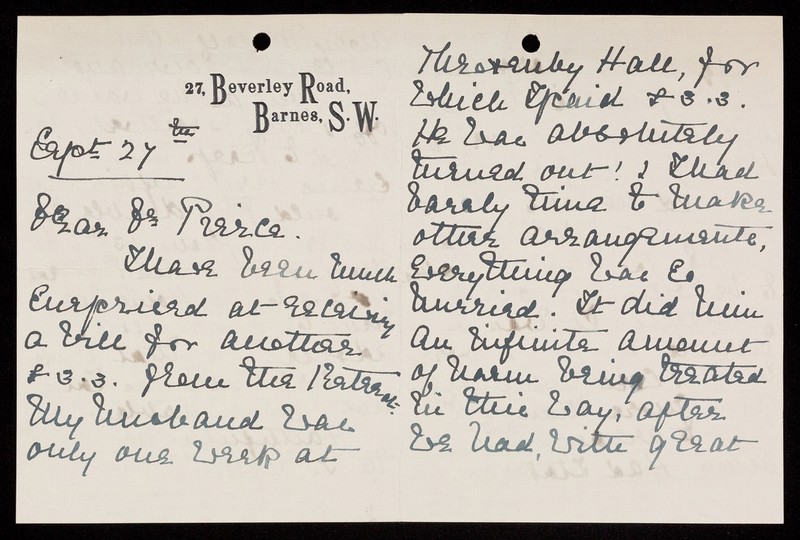 27, Beverley Road,
Barnes, S.W.
Sept 27th
Dear Dr Pierce.
I have been much
surprised at receiving
a bill for another
£3.3. from the Retreat.
My husband was
only one week at
Thorxenby Hall, for
which I paid £3.3.
He was absolutely
turned out! & I had
barely time to make
other arrangements,
everything was so
hurried. It did him
an infinite amount
of harm being treated
in this way, after
we had, with great